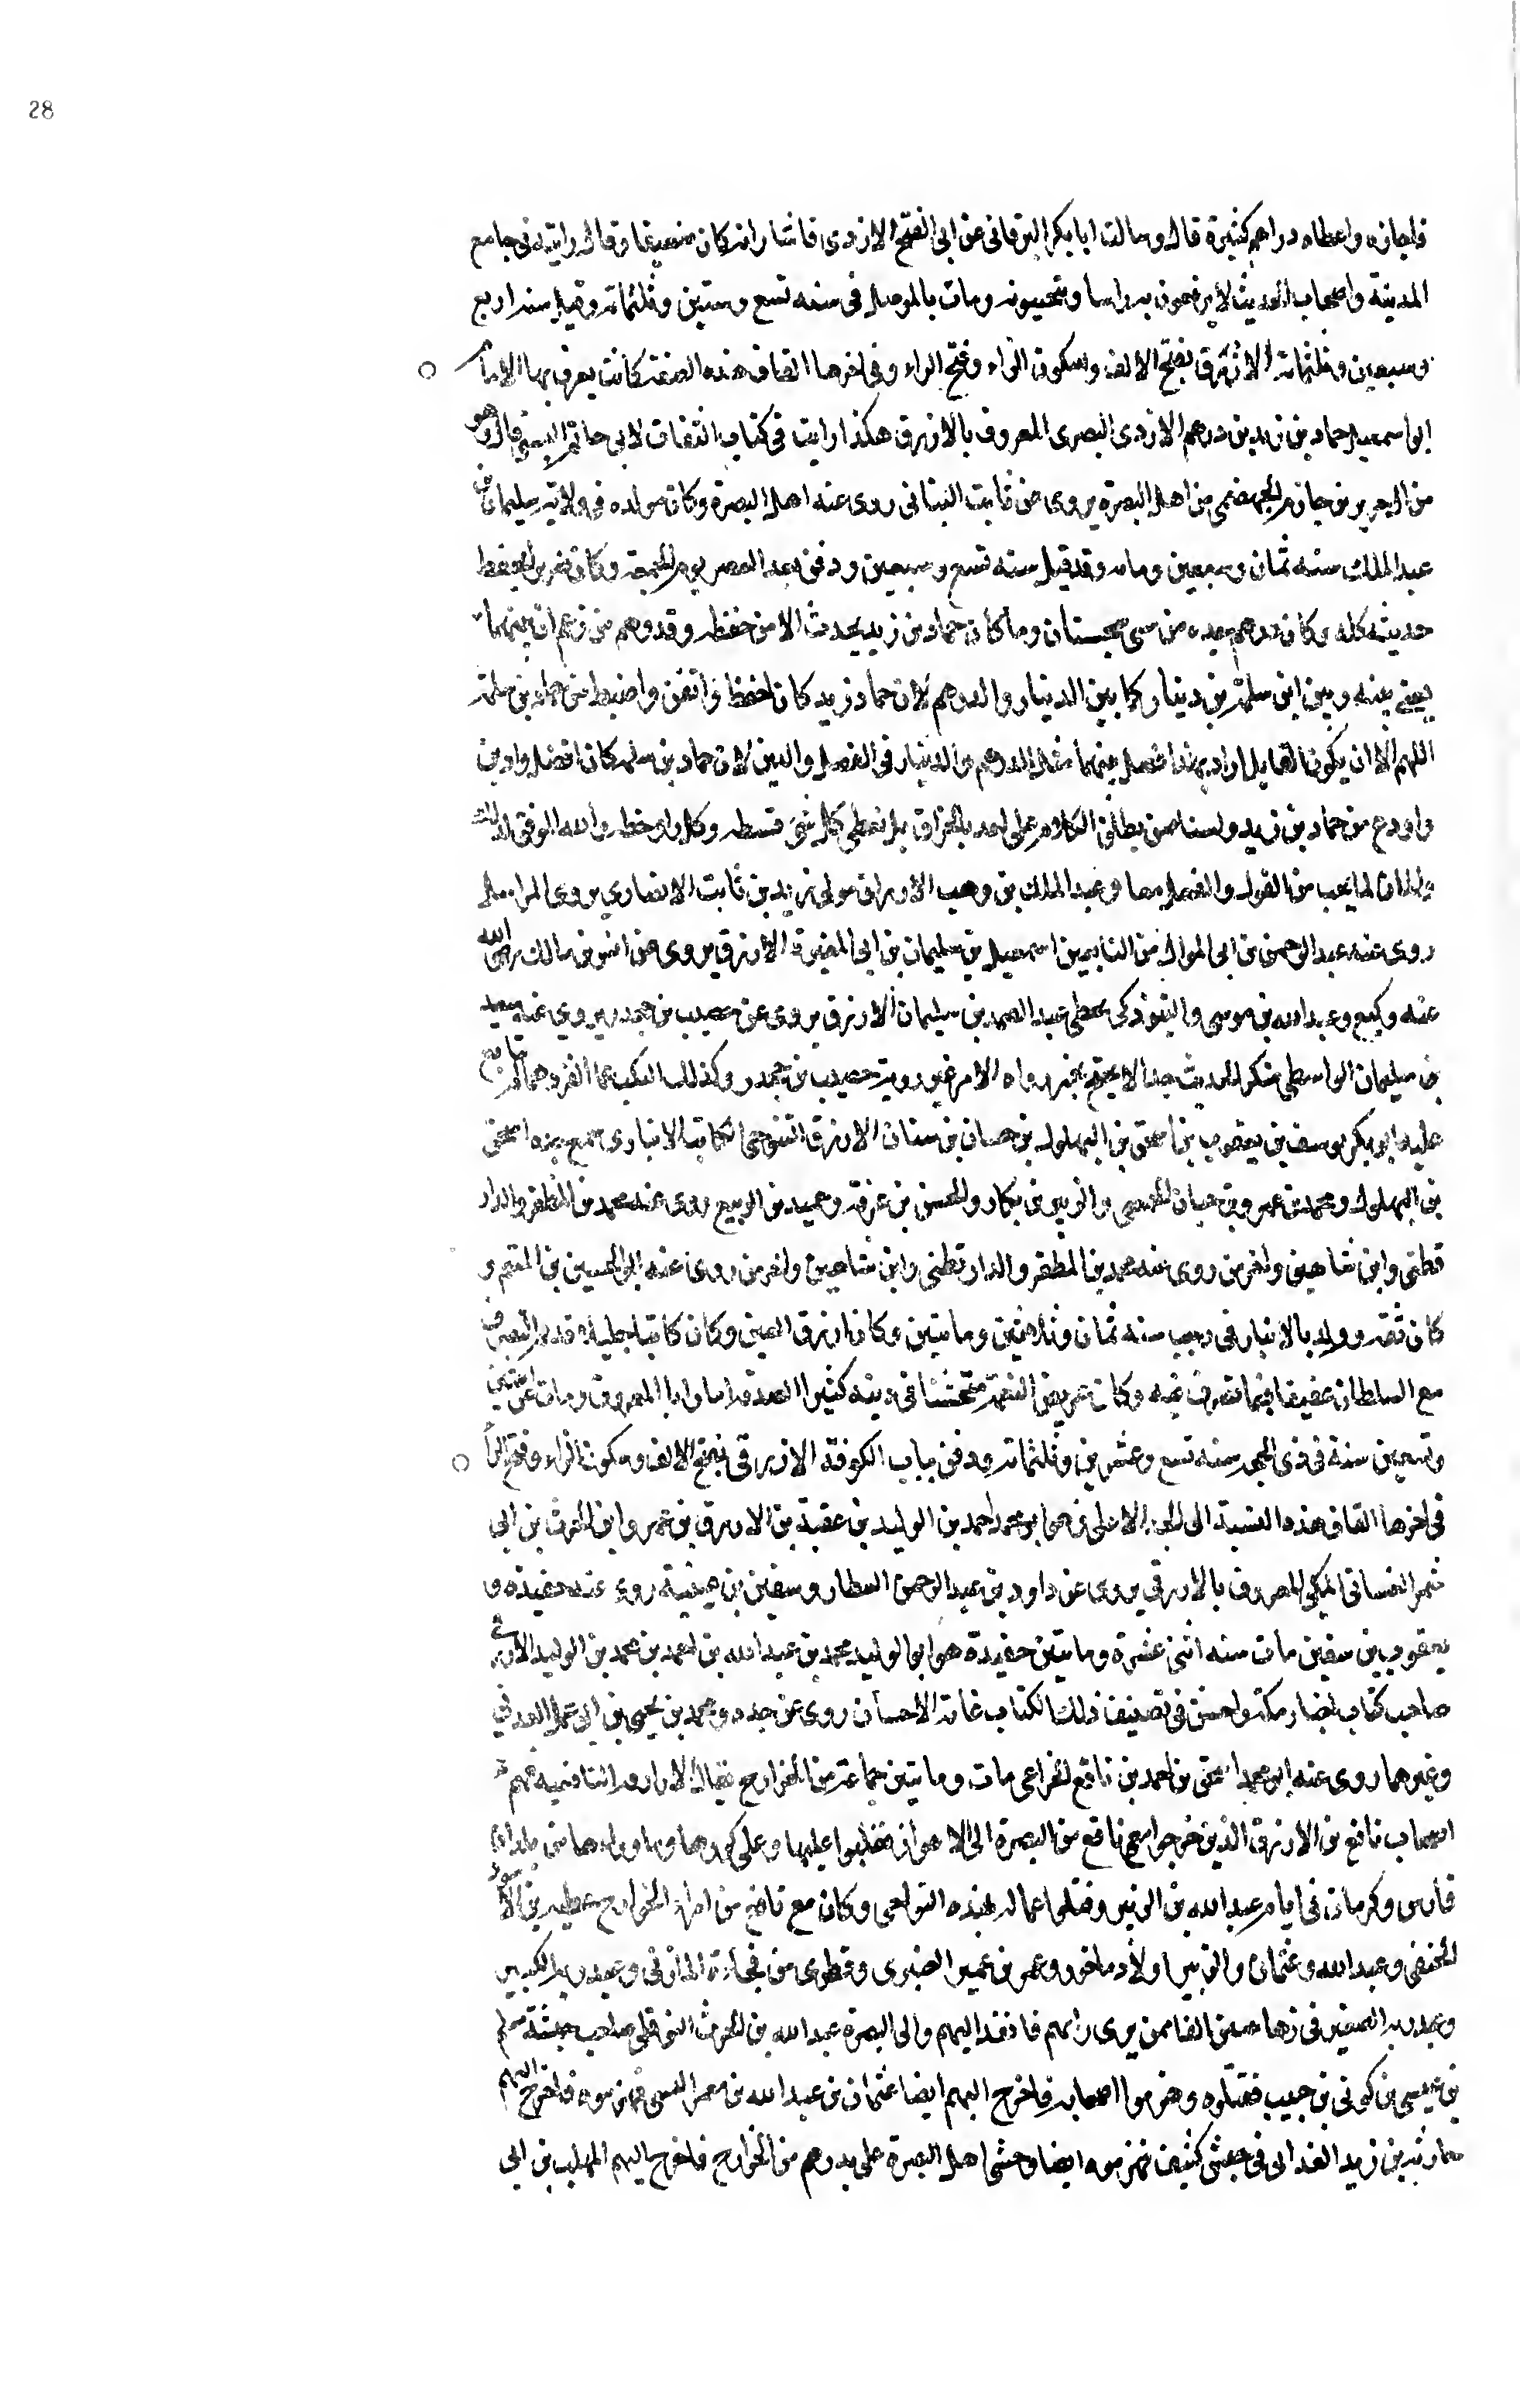 28
فاجازه واعطاه دراهم كثيرة قال وسالت ابا بكر البرقانى عن ابى الفتح الازدى فاشار انه كان ضعيفا وقال رايته فى جامع
المدينة واصحاب الحديث لا يرفعون به راسا ويتجنبونه ومات بالموصل فى سنه تسع وستين وثلثماته وقيل سنه اربع
وسبعين وثلثماته الازرق بفتح الالف وسكون الزاء وفتح الراء وفى اخرها القاف هذه الصفة كانت يعرف بها الامام
ابو اسمعيل حماد بن زيد بن درهم الازدى البصرى المعروف بالازرق هكذا رايت فى كتاب الثقات لابى حاتم البستى قال وهو
من ال جرير بن حازم الجهضمى من اهل البصرة يروى عن ثابت البنانى روى عنه اهل البصرة وكان مولده فى ولاية سليمان بن
عبد الملك سنه ثمان وسبعين وماه وقد قيل سنه تسع وسبعين ودفن بعد العصر يوم الجمعة وكان ضرير يحفظ
حديثه كله وكان درهم جده من سبى سجستان وما كان حماد بن زيد يحدث الا من حفظه وقد وهم من زعم ان بينهما
يعنى بينه وبين ابن سلمة بن دينار كما بين الدينار والدرهم لان حماد زيد كان احفظ واتقن واضبط من حماد بن سلمة
اللهم الا ان يكون القايل اراد بهذا فضل بينهما مثل الدرهم والدينار فى الفضل والدين لان حماد بن سلمه كان افضل وادين
واورع من حماد بن زيد ولسنا ممن يطلق الكلام على احد بالجزاف بل نعطى كل شى قسطه وكل راو حظه والله الموفق لذلك
لما يجب من القول والفعل معا وعبد الملك بن وهب الازرق مولى زيد بن ثابت الانصارى يروى المراسيل
روى عنه عبد الرحمن بن ابى الموال من التابعين اسمعيل بن سليمان بن ابى المغيرة الازرق يروى عن انس بن مالك رضى الله
عنه وكيع وعبد الله بن موسى والتبوذكى عبد الصمد بن سليمان الازرق يروى عن خصيب بن جحدر يروى عنه سعيد
بن سليمان الواسطى منكر الحديث جدا لا يحتج بخبر رواه الا من غير روية خصيب بن جحدر وكذلك اذا انفرد هما لم يتابع
عليه ابو بكر يوسف بن يعقوب بن اسحق بن البهلول بن حسان بن سنان الازرق التنوخى الكاتب الانبارى سمع جده اسحق
بن البهلول ومحمد بن عمرو بن حنان الحمصى والزبير بن بكار والحسن بن عرفة وحميد بن الربيع روى عنه محمد بن المظفر والدار
قطنى وابن شاهين واخر من روى عنه محمد بن المظفر والدار قطنى وابن شاهين واخر من روى عنه ابو الحسين بن المتيم و
كان ثقه وولد بالانبار فى رجب سنه ثمان وثلاثين وماتين وكان ازرق العين وكان كاتبا جليلا قديم التصرف
مع السلطان عفيفا فيما تصرف فيه وكان عريض النعمة متخشنا فى دينه كثير الصدقه امارا بالمعروف ومات عن اثنتين
وتسعين سنة فى ذى الحجه سنه تسع وعشرين وثلثماته ودفن بباب الكوفة الازرقى بفتح الالف وسكون الزاء وفتح الراء
فى اخرها القاف هذه النسبة الى الجد الاعلى وهو ابو محمد احمد بن الوليد بن عقبة بن الازرق بن عمرو بن الحرث بن ابى
شمر الغسانى المكى المعروف بالازرقى يروى عن داود بن عبد الرحمن العطار وسفين بن عيينة روى عنه حفيده و
يعقوب بن سفين مات سنه اثنى عشرة وماتين حفيده هو ابو الوليد محمد بن عبد الله بن احمد بن محمد بن الوليد الازرقى
صاحب كتاب اخبار مكة واحسن فى تصنيف ذلك الكتاب غاية الاحسان روى عن جده ومحمد بن يحيى بن ابى عمر العدنى
وغيرهما روى عنه ابو محمد اسحق بن احمد بن نافع الخزاعى مات وماتين جماعة من الخوارج يقال لهم
اصحاب نافع بن الازرق الذين خرجوا مع نافع من البصرة الى الاهواز فغلبوا عليها وعلى كورها وما وراءها من بلدان
فارس وكرمان فى ايام عبد الله بن الزبير وقتلوا عماله بهذه النواحى وكان مع نافع من امراء الخوارج عطية بن الاسود
الحنفى وعبد الله وعثمان والزبير اولاد ماخور وعمر بن عمير العنبرى وقطرى بن فجاءة المازنى وعبد ربه الكبير
وعبد ربه الصغير فى زهاء ثلثين الفا ممن يرى رايهم فانفذ اليهم والى البصرة عبد الله بن الحرث النوفلى صاحب جيشه مسلم
بن عبيس بن كريز بن حبيب فقتلوه وهزموا اصحابه فاخرج اليهم ايضا عثمان بن عبد الله بن معمر التيمى فهزموه فاخرج اليهم
حارثة بن زيد الغدانى فى جيش كثيف فهزموه ايضا وخشى اهل البصرة على بلدهم من الخوارج فاخرج اليهم المهلب بن ابى